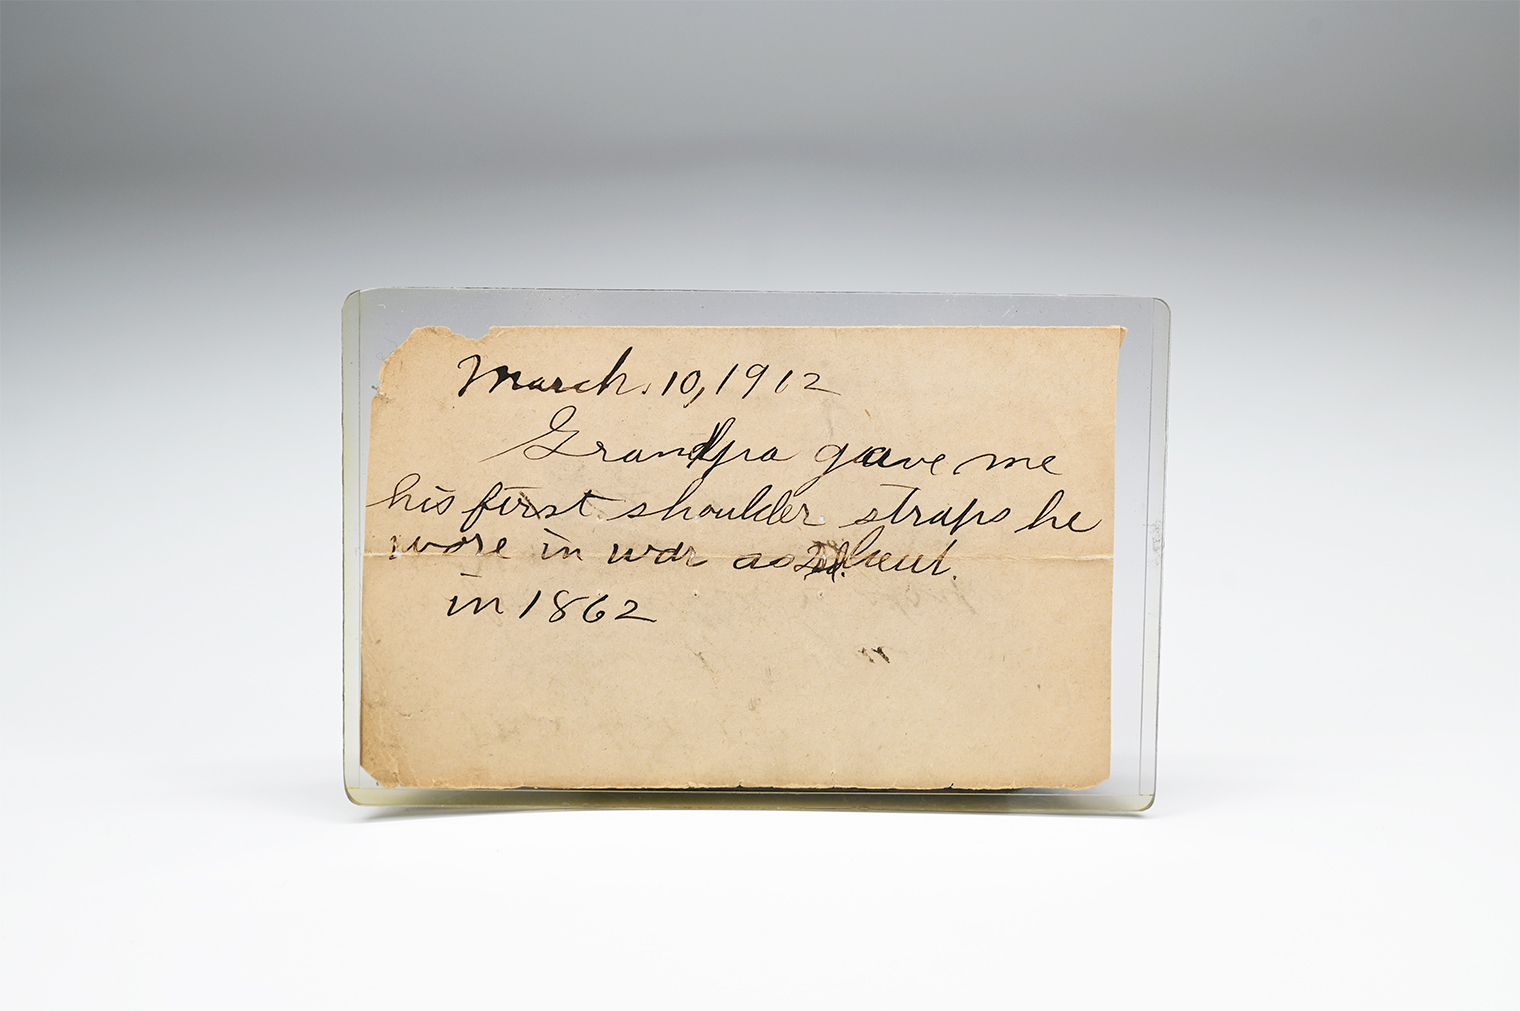 March. 10, 1912
Grandpa gave me
his first shoulder straps he
wore in war as 2d. Lieut.
in 1862